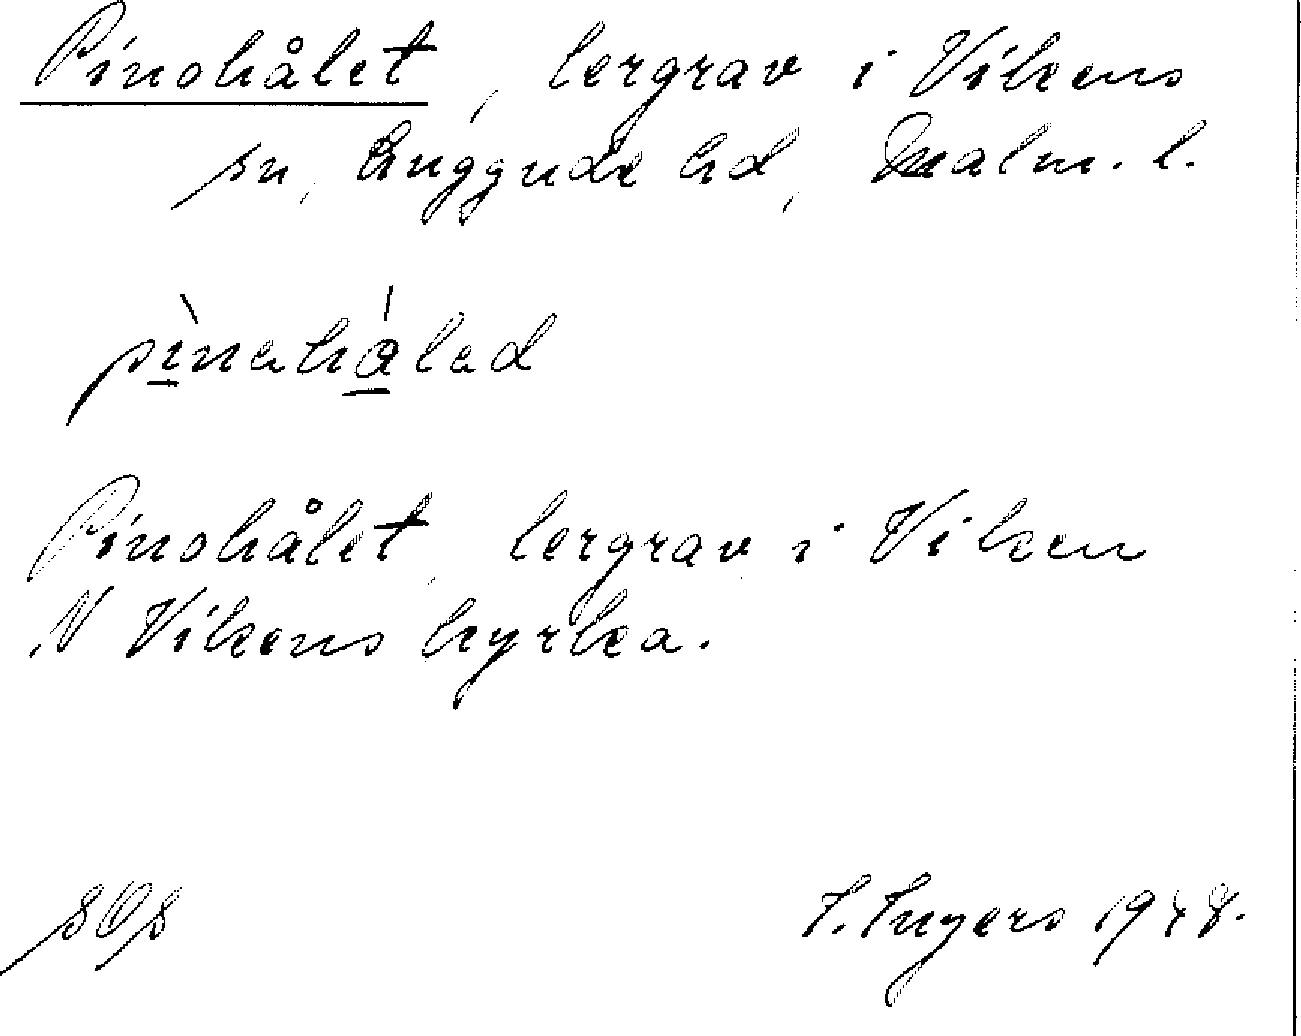 Pinohålet, lergrav i Vikens
sn, Luggude hd, Malm. l.
pìnahálad
Pinohålet, lergrav i Viken
N Vikens kyrka.
I. Ingers 1948.